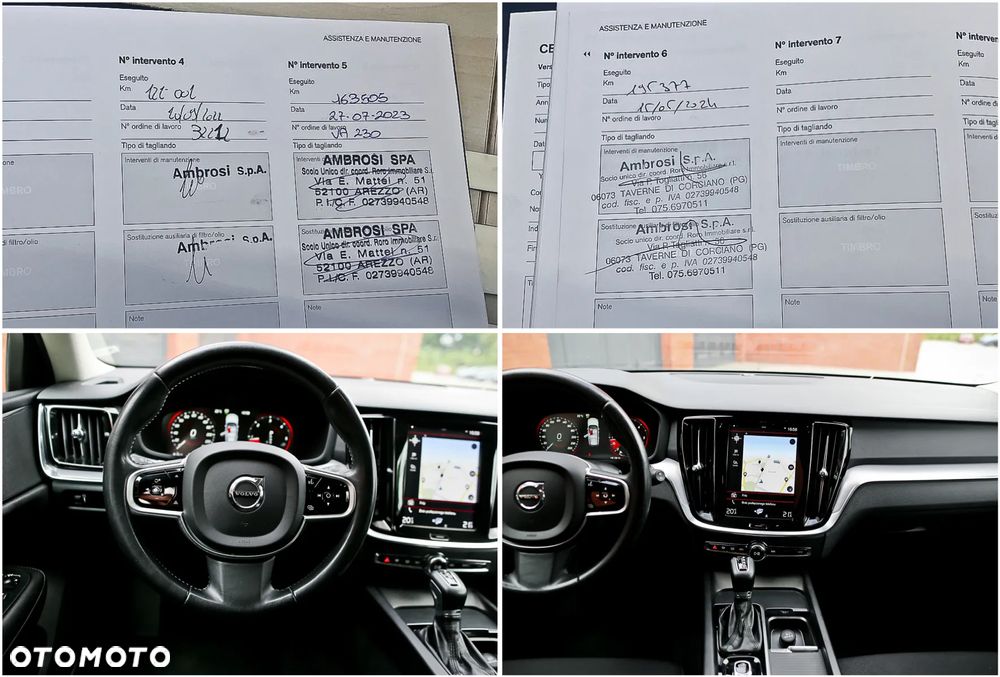 ASSISTENZA E MANUTENZIONE
N° intervento 4
Eseguito
Km 121 001
Data
N° ordine di lavoro
Tipo di tagliando
Interventi di manutenzione
Ambrosi S.p.A.
Sostituzione ausiliaria di filtro/olio
Ambrosi S.p.A.
Note
N° intervento 5
Eseguito
Km 163505
Data 27-07-2023
N° ordine di lavoro VA 230
Tipo di tagliando
Interventi
AMBROSI SPA
Socio Unico dir. coord. Roro Immobiliare s.r.l.
Via E. Mattei n. 51
52100 AREZZO (AR)
P. I./C. F. 02739940548
AMBROSI SPA
Socio Unico dir. coord. Roro Immobiliare s.r.l.
Via E. Mattei n. 51
52100 AREZZO (AR)
P. I./C. F. 02739940548
Note
di filtro/olio
ASSISTENZA E MANUTENZIONE
N° intervento 6
Eseguito
Km 195 377
Data 15/05/2024
N° ordine di lavoro
Tipo di tagliando
Interventi di manutenzione
Ambrosi S.p.A.
Socio unico dir. coord. Roro Immobiliare s.r.l.
Via P. Togliatti n. 56
06073 TAVERNE DI CORCIANO (PG)
cod. fisc. e p. IVA 02739940548
Tel. 075.6970511
Sostituzione ausiliaria di filtro/olio
Ambrosi S.p.A.
Socio unico dir. coord. Roro Immobiliare s.r.l.
Via P. Togliatti n. 56
06073 TAVERNE DI CORCIANO (PG)
cod. fisc. e p. IVA 02739940548
Tel. 075.6970511
Note
N° intervento 7
Eseguito
Km
Data
N° ordine di lavoro
Tipo di tagliando
Interventi di manutenzione
TIMBRO
Sostituzione ausiliaria di filtro/olio
TIMBRO
Note
VOLVO
VOLVO
OTOMOTO